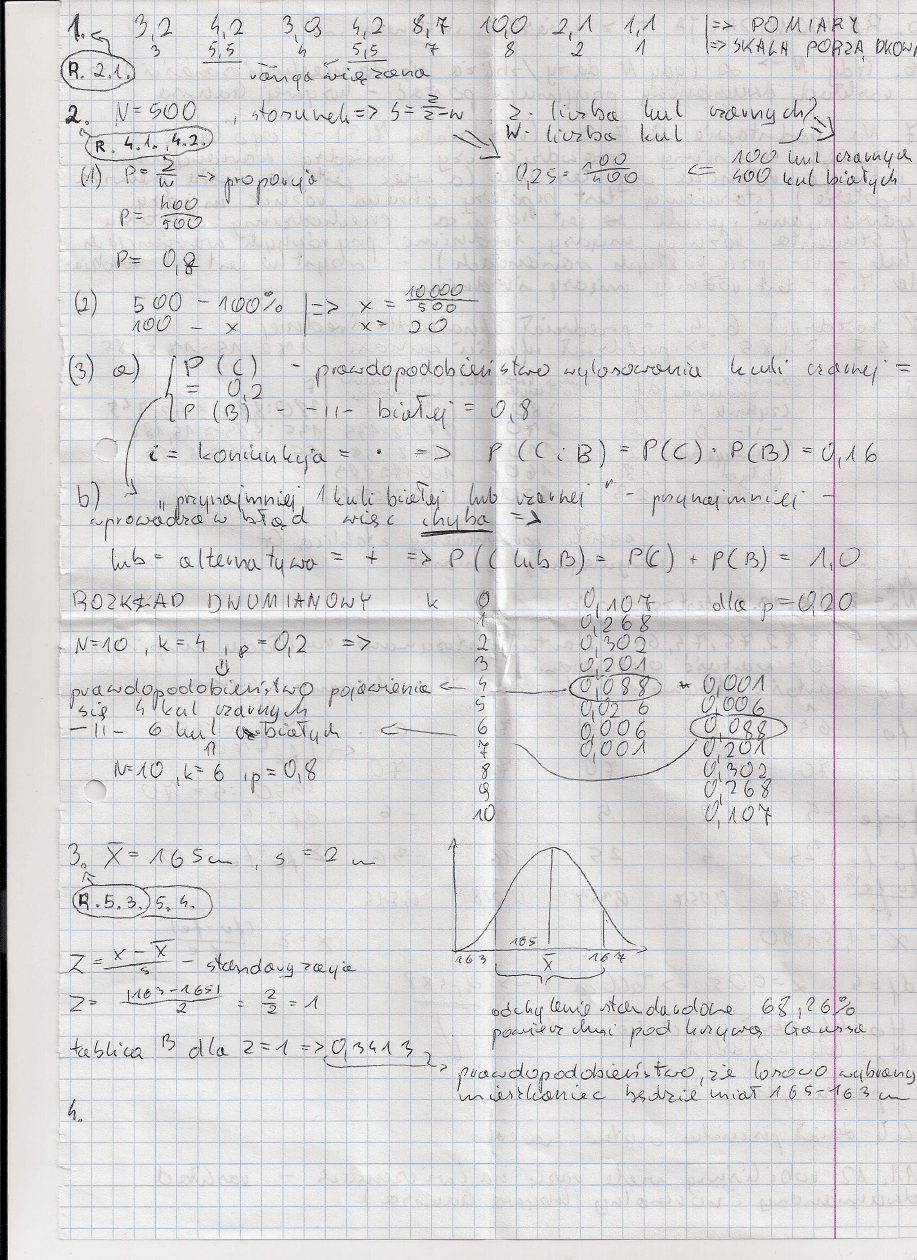 1. 3,2 4,2 3,9 4,2 8,7 10,0 2,1 1,1 |=> POMIARY
R. 2.1. 3 5,5 4 5,5 7 8 2 1 |=> SKALA PORZĄDKOWA
ranga wiązana
2. N=500 , stosunek => S = z/z-w z - liczba kul czarnych?
R. 4.1., 4.2. W - liczba kul
(1) P = z/w -> proporcja 0,25 = 100/400 <= 100 kul czarnych
400 kul białych
P = 400/500
P = 0,8
(2) 500 - 100% |=> x = 10000/500
100 - x x = 20
(3) a) P(C) - prawdopodobieństwo wylosowania kuli czarnej =
= 0,2
P(B) - -11- białej = 0,8
i = koniunkcja = · => P(C i B) = P(C) · P(B) = 0,16
b) „przynajmniej 1 kuli białej lub czarnej" - przynajmniej -
wprowadza w błąd więc chyba =>
lub = alternatywa = + => P(C lub B) = P(C) + P(B) = 1,0
ROZKŁAD DWUMIANOWY k 0 0,107 dla p=0,20
1 0,268
N=10 , k=4 , p=0,2 => 2 0,302
3 0,201
prawdopodobieństwo pojawienia <- 4 0,088 0,001
się 4 kul czarnych 5 0,026 0,006
-11- 6 kul białych <- 6 0,006 0,088
7 0,001 0,201
N=10 , k=6 , p=0,8 8 0,302
9 0,268
10 0,107
3. X̄ = 165 cm , s = 2 cm
R. 5.3. 5.4.
165
163 X̄ 167
Z = x - X̄/s - standaryzacja
Z = |163-165|/2 = 2/2 = 1
odchylenie standardowe 68,26%
powierzchni pod krzywą Gaussa
tablica B dla z=1 => 0,3413
prawdopodobieństwo, że losowo wybrany
mieszkaniec będzie miał 165-163 cm
4.